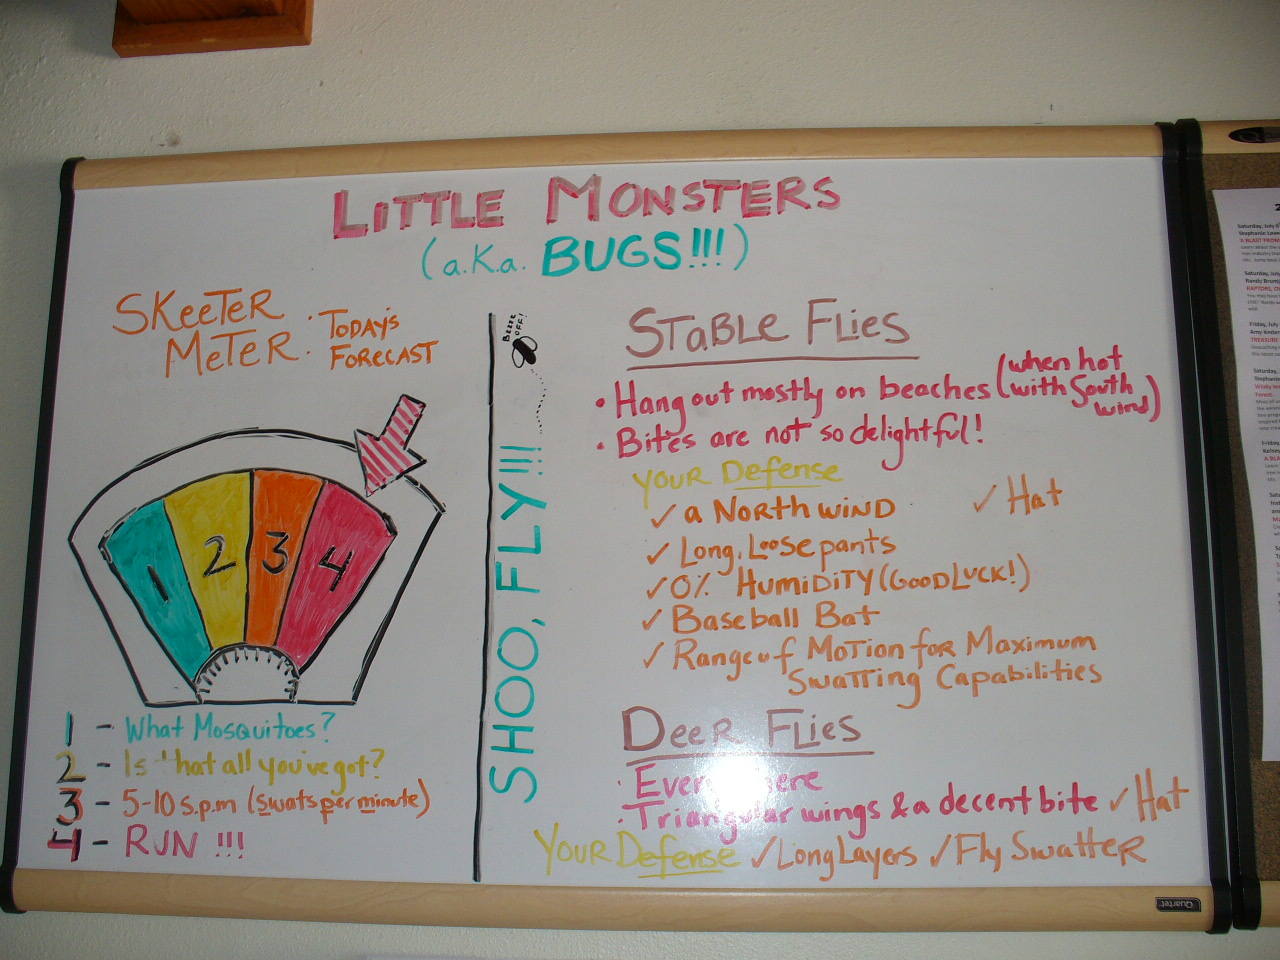 LITTLE MONSTERS
(a.k.a. BUGS!!!)
SKeeTeR
MeTeR :
TODAY'S
FORECAST
1
2
3
4
1 - What Mosquitoes?
2 - Is that all you've got?
3 - 5-10 s.p.m (swats per minute)
4 - RUN !!!
BZZZ
OFF!
SHOO, FLY!!!!
STaBLe FLies
• Hang out mostly on beaches (when hot
with South
wind)
• Bites are not so delightful!
YOUR Defense
✓ a NORTH WIND
✓ Hat
✓ Long, Loose pants
✓ 0% HUMiDiTY (GOOD LUCK!)
✓ Baseball Bat
✓ Range of MOTION for Maximum
Swatting Capabilities
DeeR FLies
• Everywhere
• Triangular wings & a decent bite ✓ Hat
YOUR Defense ✓ Long Layers ✓ Fly Swatter
Quartet
Saturday, July
A BLAST FROM
Saturday, July
Friday, July
TREASURE
Saturday,